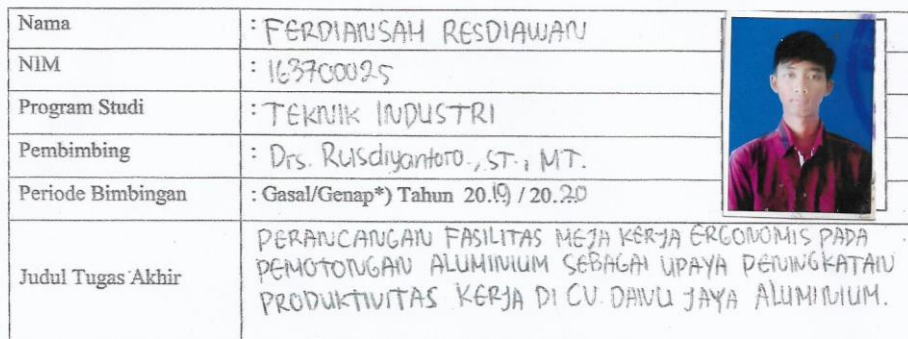 Nama : FERDIANSAH RESDIAWAN
NIM : 163700025
Program Studi : TEKNIK INDUSTRI
Pembimbing : Drs. Rusdiyantoro., ST., MT.
Periode Bimbingan : Gasal/Genap*) Tahun 20.19 / 20.20
Judul Tugas Akhir : PERANCANGAN FASILITAS MEJA KERJA ERGONOMIS PADA
PEMOTONGAN ALUMINIUM SEBAGAI UPAYA PENINGKATAN
PRODUKTIVITAS KERJA DI CV. DANU JAYA ALUMINIUM.